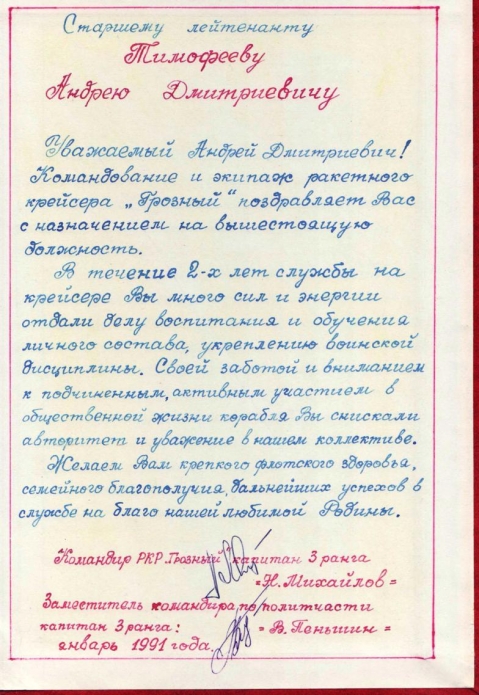 Старшему лейтенанту
Тимофееву
Андрею Дмитриевичу
Уважаемый Андрей Дмитриевич!
Командование и экипаж ракетного
крейсера „Грозный“ поздравляет Вас
с назначением на вышестоящую
должность.
В течение 2-х лет службы на
крейсере Вы много сил и энергии
отдали делу воспитания и обучения
личного состава, укреплению воинской
дисциплины. Своей заботой и вниманием
к подчиненным, активным участием в
общественной жизни корабля Вы снискали
авторитет и уважение в нашем коллективе.
Желаем Вам крепкого флотского здоровья,
семейного благополучия, дальнейших успехов в
службе на благо нашей любимой Родины.
Командир РКР „Грозный“ капитан 3 ранга
=Н. Михайлов=
Заместитель командира по политчасти
капитан 3 ранга:
= В. Пеньшин =
январь 1991 года.